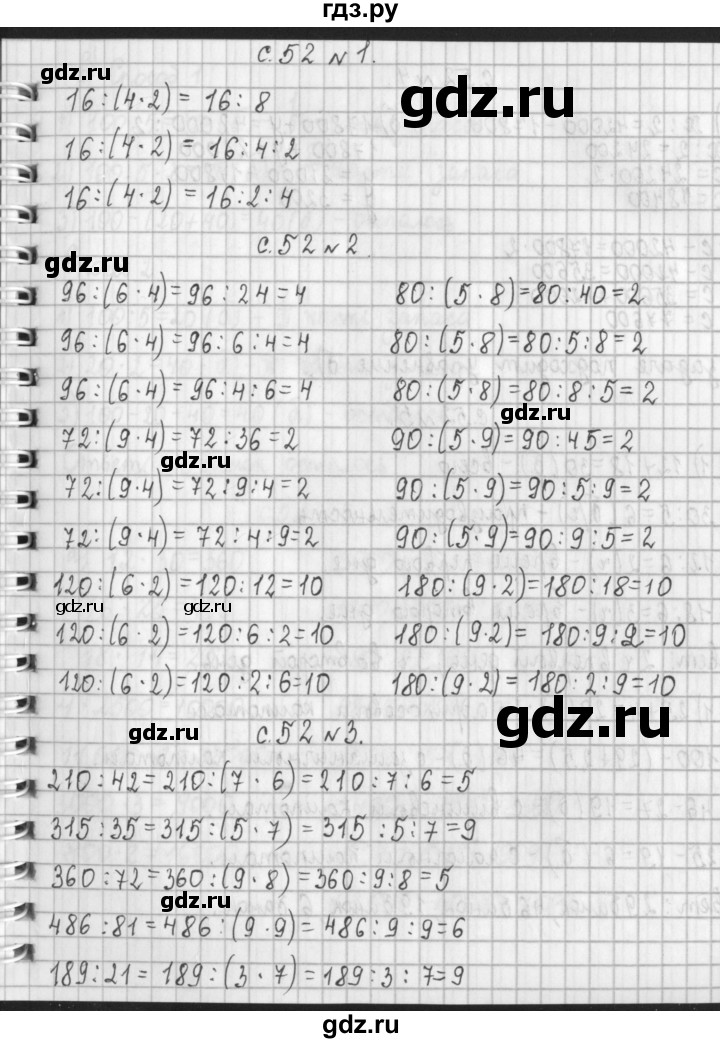 гдз.ру
с.52 №1.
gdz.ru
gdz.ru
16:(4·2) = 16:8
16:(4·2) = 16:4:2
16:(4·2) = 16:2:4
с.52 №2.
gdz.ru
96:(6·4)=96:24=4 80:(5·8)=80:40=2
96:(6·4)=96:6:4=4 80:(5·8)=80:5:8=2
96:(6·4)=96:4:6=4 80:(5·8)=80:8:5=2
gdz.ru
72:(9·4)=72:36=2 90:(5·9)=90:45=2
gdz.ru
72:(9·4)=72:9:4=2 90:(5·9)=90:5:9=2
72:(9·4)=72:4:9=2 90:(5·9)=90:9:5=2
120:(6·2)=120:12=10 180:(9·2)=180:18=10
gdz.ru gdz.ru
120:(6·2)=120:6:2=10 180:(9·2)=180:9:2=10
120:(6·2)=120:2:6=10 180:(9·2)=180:2:9=10
gdz.ru
с.52 №3.
210:42=210:(7·6)=210:7:6=5
315:35=315:(5·7)=315:5:7=9
360:72=360:(9·8)=360:9:8=5
gdz.ru
486:81=486:(9·9)=486:9:9=6
189:21=189:(3·7)=189:3:7=9
gdz.ru